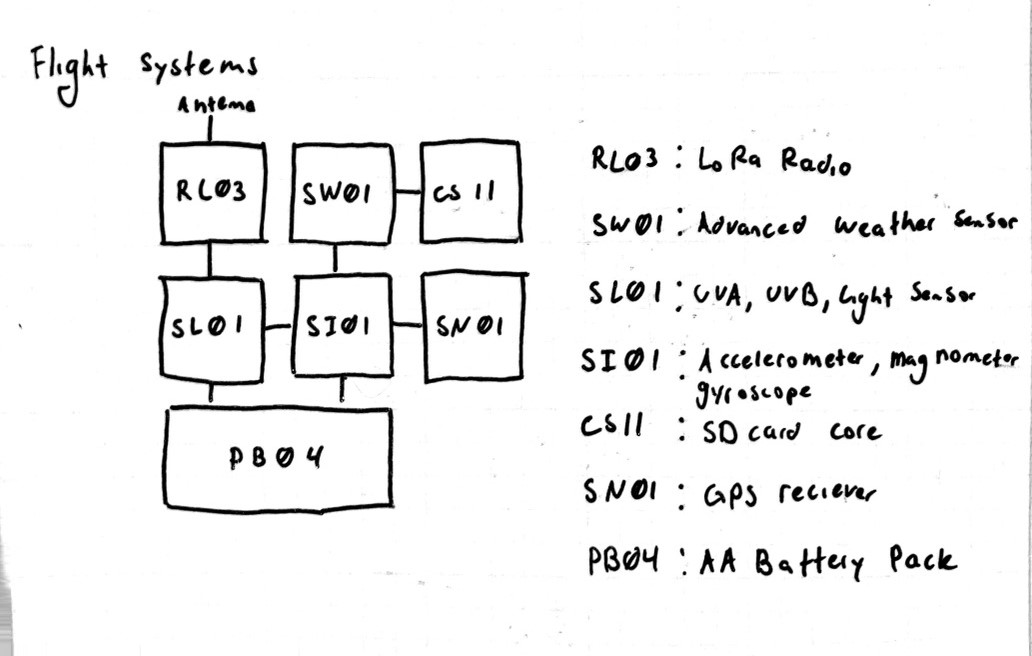 Flight Systems
Antenna
RL03
SW01
CS11
SL01
SI01
SN01
PB04
RL03 : LoRa Radio
SW01 : Advanced weather Sensor
SL01 : UVA, UVB, Light Sensor
SI01 : Accelerometer, magnometer
gyroscope
CS11 : SD card core
SN01 : GPS reciever
PB04 : AA Battery Pack